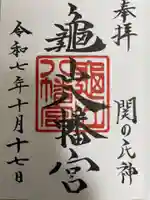 奉拝
関の氏神
亀山八幡宮
令和七年十月十七日